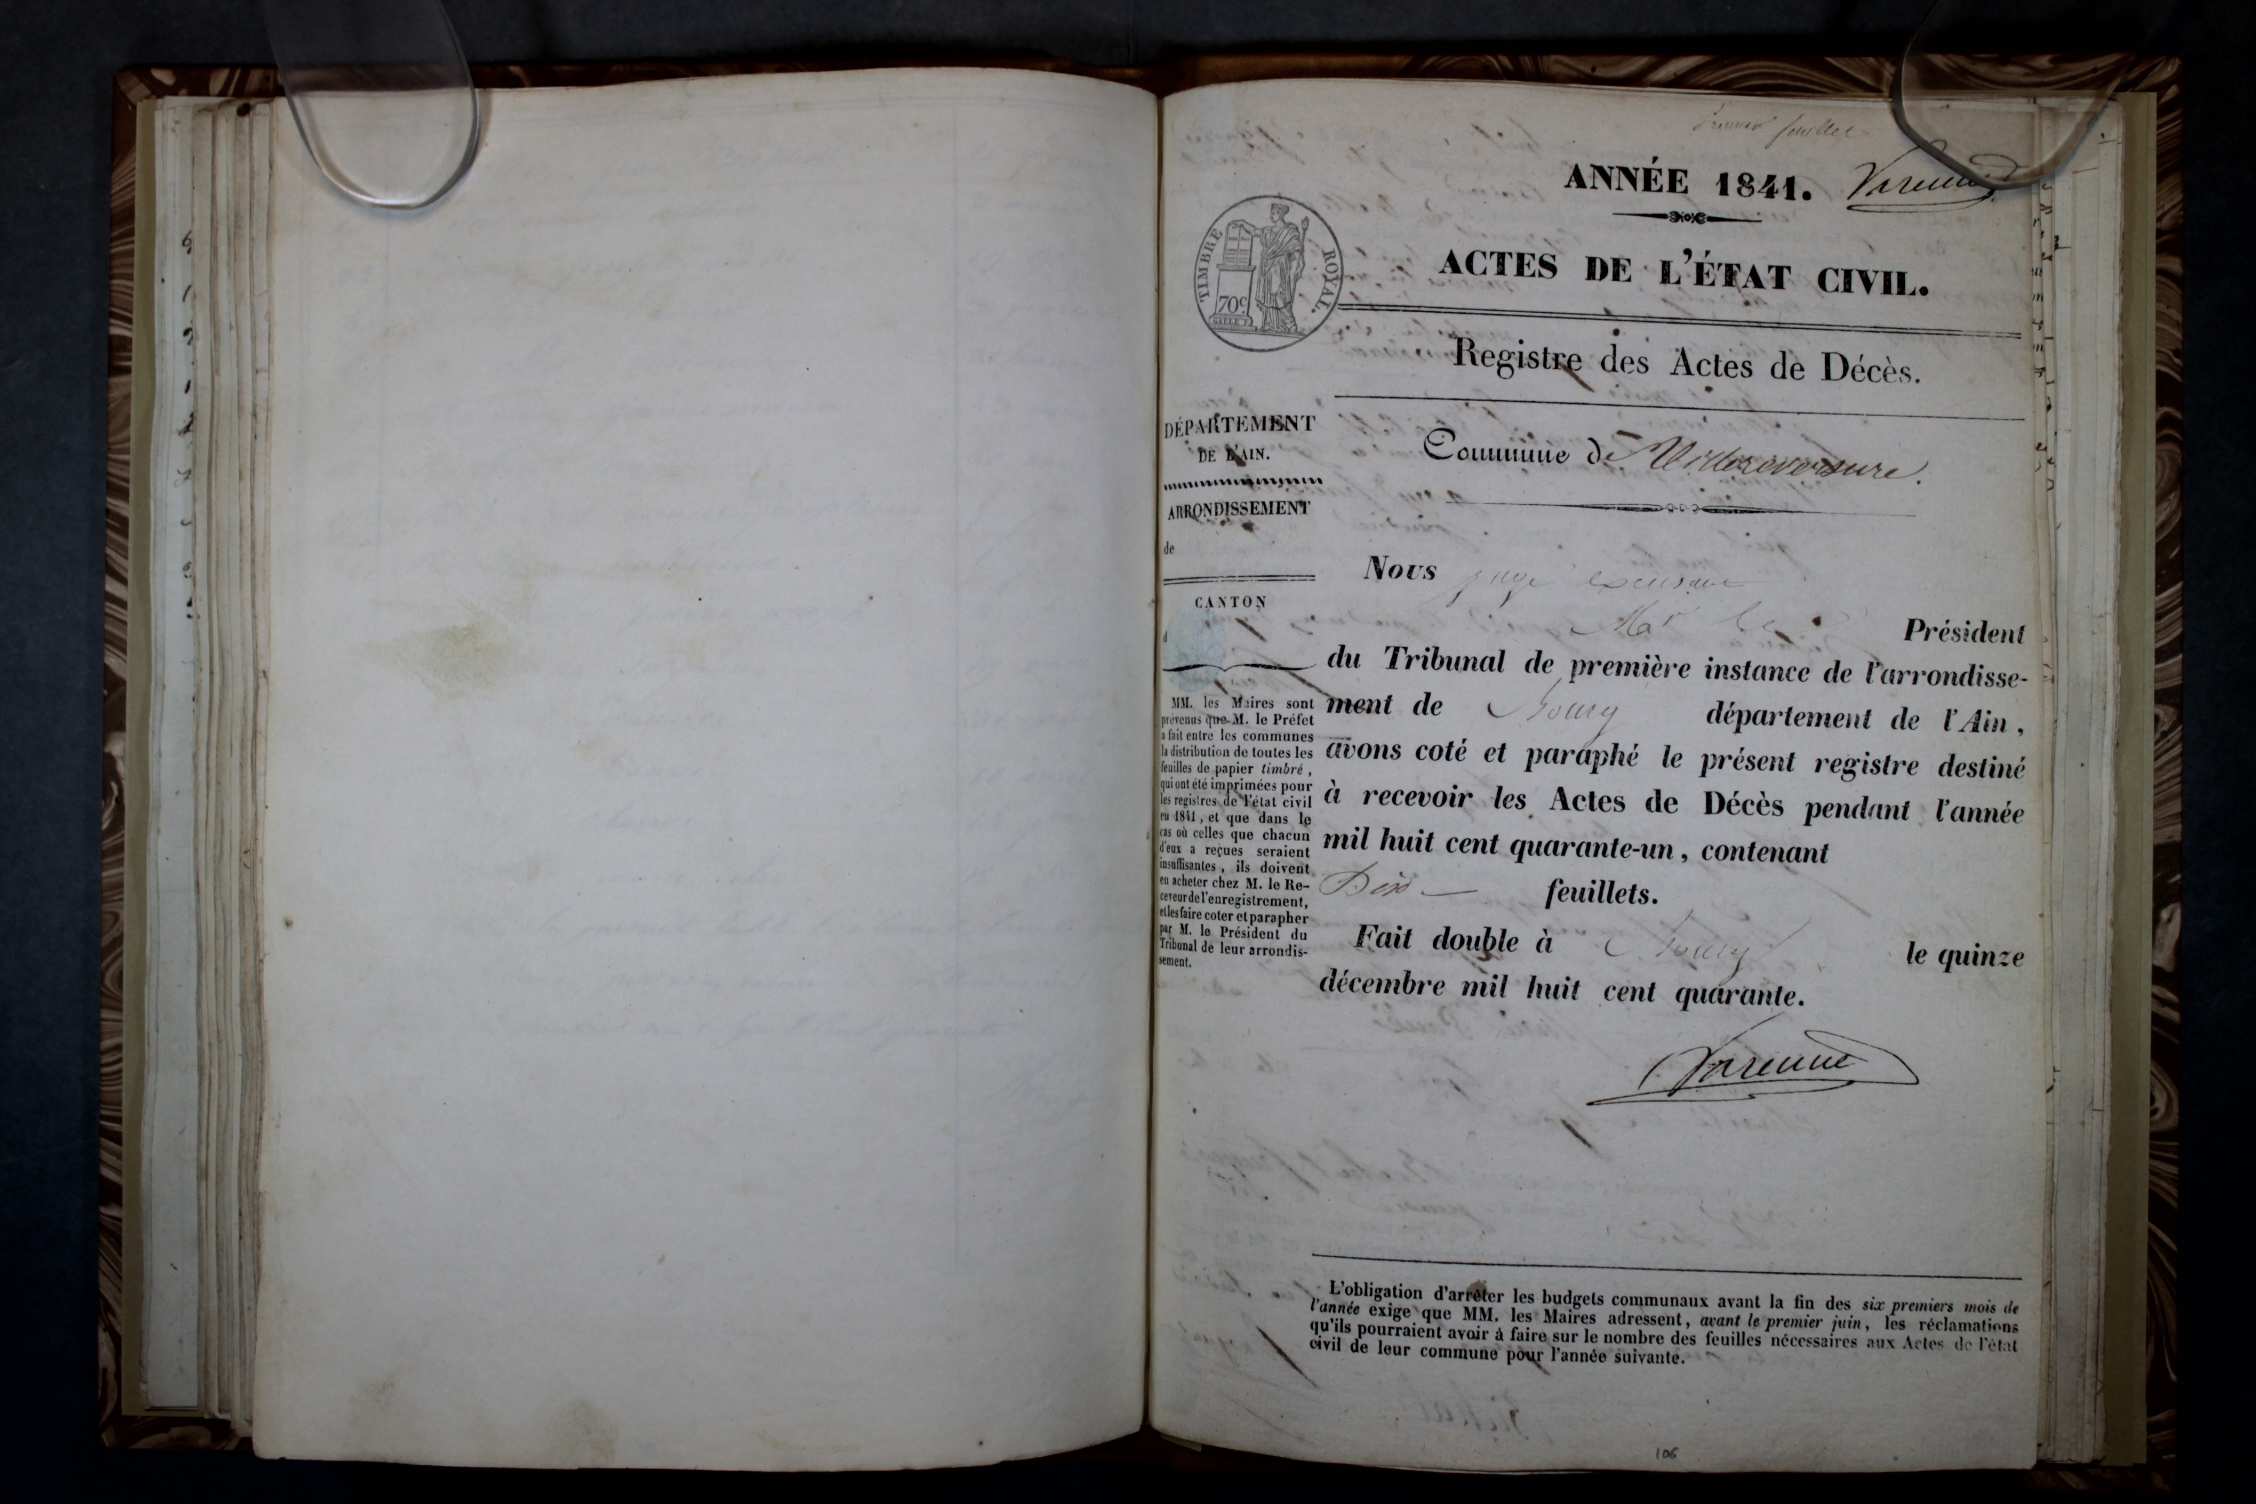 premier feuillet
ANNÉE 1841. Varenne
TIMBRE ROYAL.
70c
ACTES DE L'ÉTAT CIVIL.
Registre des Actes de Décès.
DÉPARTEMENT
DE L'AIN.
ARRONDISSEMENT
de
CANTON
d
MM. les Maires sont
prévenus que M. le Préfet
a fait entre les communes
la distribution de toutes les
feuilles de papier timbré,
qui ont été imprimées pour
les registres de l'état civil
en 1841, et que dans le
cas où celles que chacun
d'eux a reçues seraient
insuffisantes, ils doivent
en acheter chez M. le Re-
ceveur de l'enregistrement,
et les faire coter et parapher
par M. le Président du
Tribunal de leur arrondis-
sement.
Commune de Villereversure.
Nous juge
Mr le Président
du Tribunal de première instance de l'arrondisse-
ment de Bourg département de l'Ain,
avons coté et paraphé le présent registre destiné
à recevoir les Actes de Décès pendant l'année
mil huit cent quarante-un, contenant
Dix feuillets.
Fait double à Bourg le quinze
décembre mil huit cent quarante.
Varenne
L'obligation d'arrêter les budgets communaux avant la fin des six premiers mois de
l'année exige que MM. les Maires adressent, avant le premier juin, les réclamations
qu'ils pourraient avoir à faire sur le nombre des feuilles nécessaires aux Actes de l'état
civil de leur commune pour l'année suivante.
106